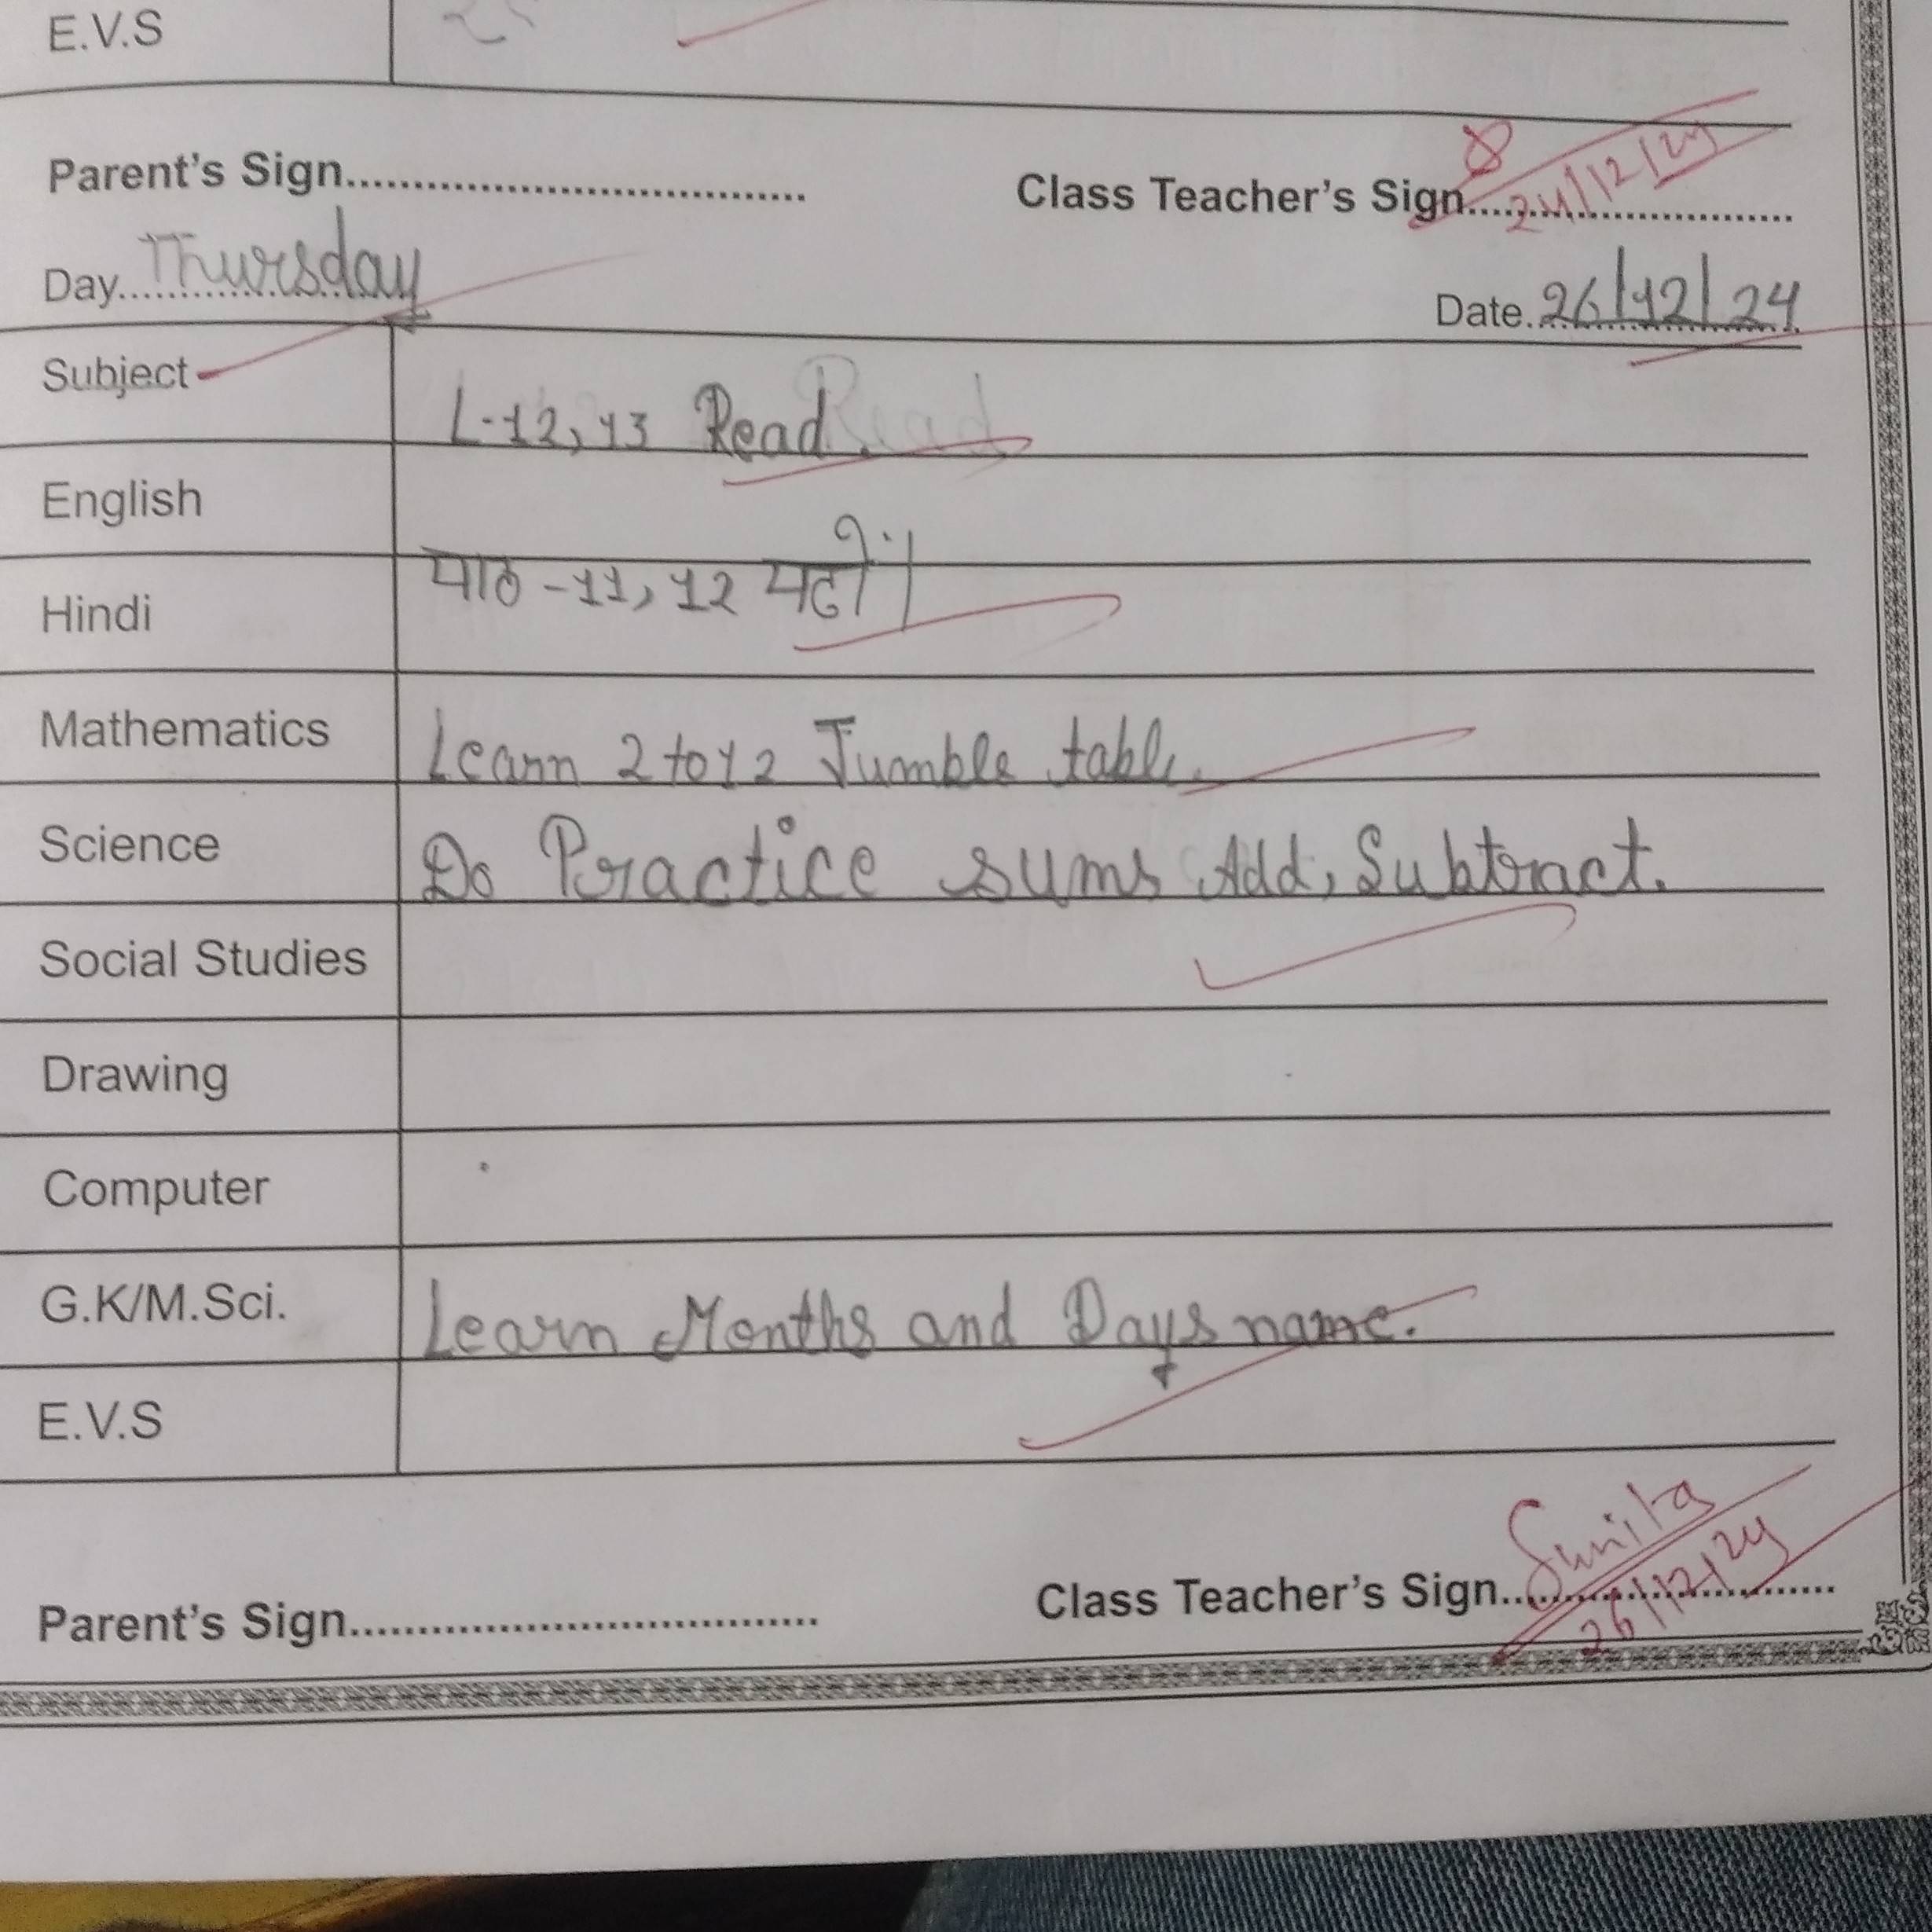 E.V.S
Parent's Sign.................................. Class Teacher's Sign........................
24/12/24
Day Thursday Date 26/12/24
Subject L-12, 13 Read.
English
Hindi पाठ -11, 12 पढो।
Mathematics Learn 2 to 12 Jumble table.
Science Do Practice sums Add, Subtract.
Social Studies
Drawing
Computer
G.K/M.Sci. Learn Months and Days name.
E.V.S
Sunita
Parent's Sign.................................. Class Teacher's Sign........................
26/12/24